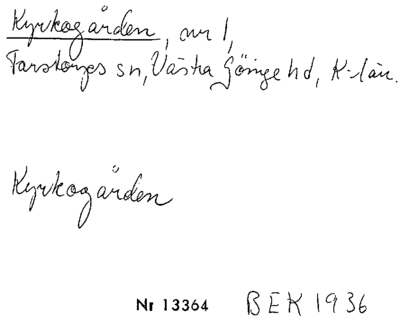 Kyrkogården, nr 1,
Farstorps sn, Västra Göinge hd, K-län.
Kyrkogården
Nr 13364 BEK 1936